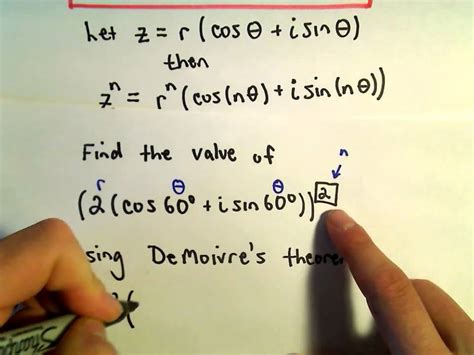 Let z = r (cos θ + i sin θ)
then
zⁿ = rⁿ (cos(nθ) + i sin(nθ))
Find the value of
r θ θ n
(2 (cos 60° + i sin 60°))²
sing DeMoivre's theore
(
Sharp